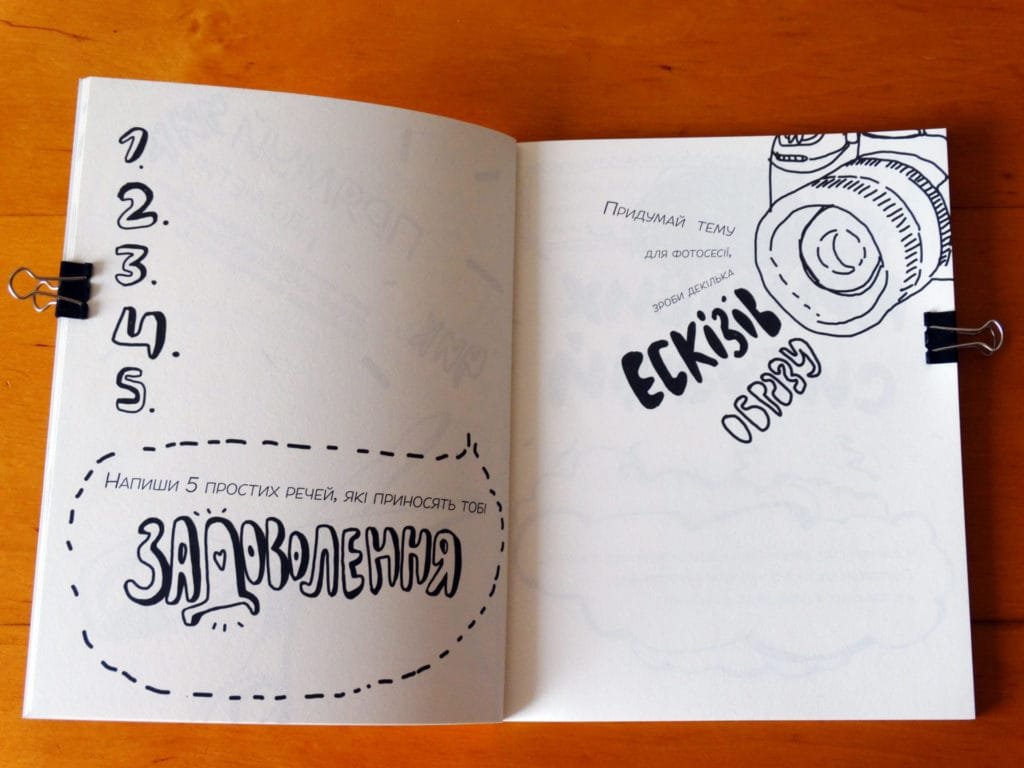 1.
2.
3.
4.
5.
Напиши 5 простих речей, які приносять тобі
ЗАДОВОЛЕННЯ
Придумай тему
для фотосесії,
зроби декілька
ЕСКІЗІВ
ОБРАЗУ